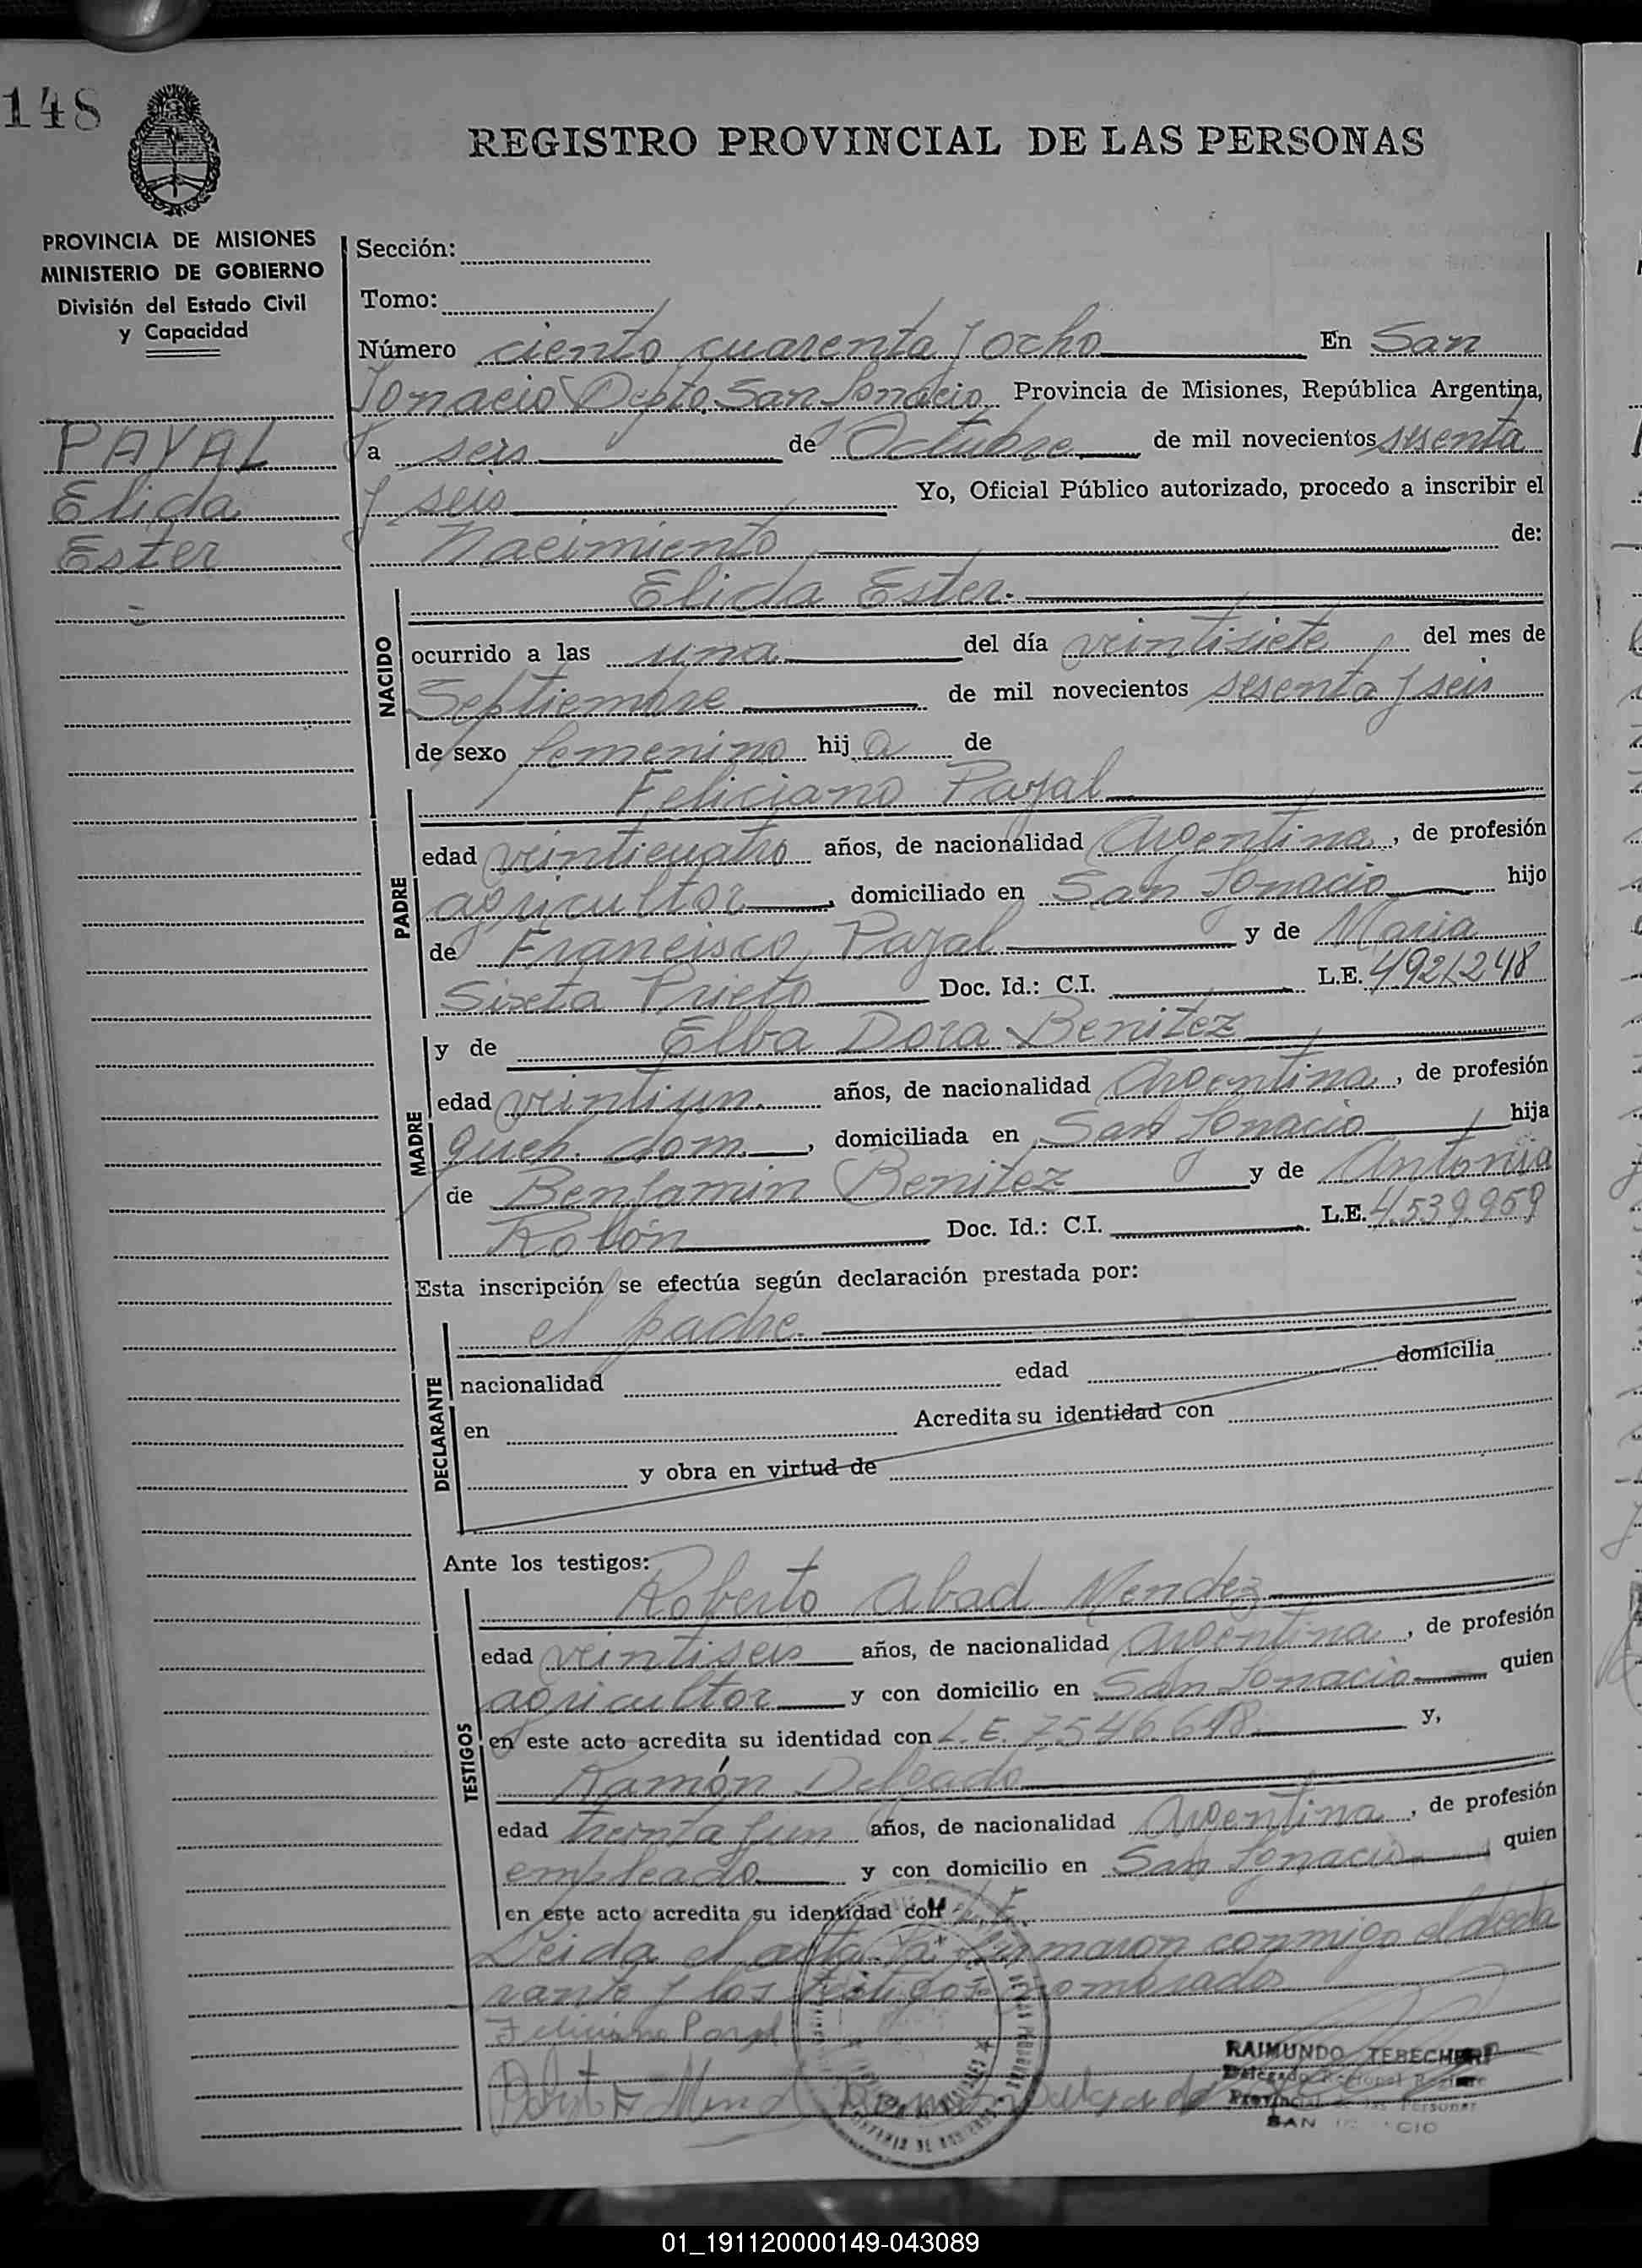 148
REGISTRO PROVINCIAL DE LAS PERSONAS
PROVINCIA DE MISIONES
MINISTERIO DE GOBIERNO
División del Estado Civil
y Capacidad
PAYAL
Elida
Ester
Sección:
Tomo:
Número ciento cuarenta y ocho En San
Ignacio Depto. San Ignacio Provincia de Misiones, República Argentina,
a seis de Octubre de mil novecientos sesenta
y seis Yo, Oficial Público autorizado, procedo a inscribir el
Nacimiento de:
NACIDO
Elida Ester.
ocurrido a las una del día veintisiete del mes de
Septiembre de mil novecientos sesenta y seis
de sexo femenino hija de
PADRE
Feliciano Payal
edad veinticuatro años, de nacionalidad Argentina, de profesión
agricultor, domiciliado en San Ignacio hijo
de Francisco Payal y de Maria
Sixta Prieto Doc. Id.: C.I. L.E. 4921248
MADRE
y de Elba Dora Benitez
edad veintiun años, de nacionalidad Argentina, de profesión
queh. dom., domiciliada en San Ignacio hija
de Benjamin Benitez y de Antonia
Rolón Doc. Id.: C.I. L.E. 4.539.959
Esta inscripción se efectúa según declaración prestada por:
DECLARANTE
el padre.
nacionalidad edad domicilia
en Acredita su identidad con
y obra en virtud de
Ante los testigos:
TESTIGOS
Roberto Abad Mendez
edad veintiseis años, de nacionalidad Argentina, de profesión
agricultor y con domicilio en San Ignacio quien
en este acto acredita su identidad con L.E. 7.546.618 y,
Ramón Delgado
edad treinta y un años, de nacionalidad Argentina, de profesión
empleado y con domicilio en San Ignacio quien
en este acto acredita su identidad con L.E.
Leida el acta la firmaron conmigo el decla
rante y los testigos nombrados
Feliciano Payal
RAIMUNDO TEBECHERI
Delegado Regional Registro
Provincial de las Personas
SAN IGNACIO
01_191120000149-043089